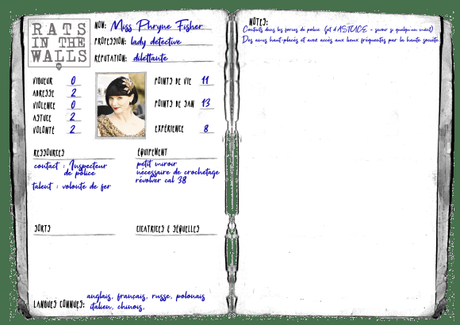 RATS
IN THE
WALLS
NOM: Miss Phryne Fisher
PROFESSION: lady detective
RÉPUTATION: dilettante
VIGUEUR 0
ADRESSE 2
VIOLENCE 0
ASTUCE 2
VOLONTÉ 2
POINTS DE VIE 11
POINTS DE SAN 13
EXPÉRIENCE 8
RESSOURCES
contact : Inspecteur
de police
talent : volonté de fer
ÉQUIPEMENT
petit miroir
nécessaire de crochetage
révolver cal 38
SORTS
CICATRICES & SÉQUELLES
LANGUES CONNUES: anglais, français, russe, polonais
italien, chinois.
NOTES:
Contacts dans les forces de police (jet d'ASTUCE - savoir si quelqu'un ment)
Des amis haut-placés et avec accès aux lieux fréquentés par la haute société.